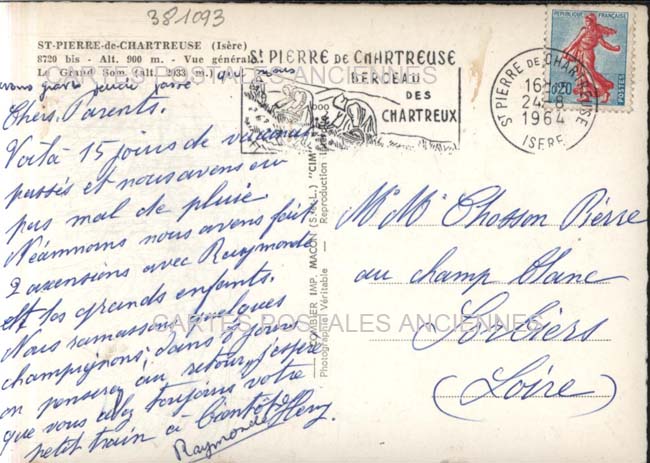 381093
ST-PIERRE-de-CHARTREUSE (Isère)
8720 bis - Alt. 900 m. - Vue générale
Le Grand Som (alt. 2033 m.)
que nous
avons passé
Chers Parents.
Voilà 15 jours de vacances
passés et nous avons eu
pas mal de pluie
Néamnoins nous avons fait
2 axensions avec Raymonde
et les grands enfants.
Nous ramassons quelques
champignons; dans 8 jours
on pensera au retour, j'espère
que vous allez toujours votre
petit train à bientôt
Raymonde Henry
COMBIER IMP. MACON (S.-&-L.) "CIM"
Photographie Véritable - Reproduction
St PIERRE DE CHARTREUSE
BERCEAU
DES
CHARTREUX
St PIERRE DE CHARTREUSE
16H
24-8
1964
ISERE
REPUBLIQUE FRANÇAISE
0,20
POSTES
Mr Mme Chosson Pierre
au champ blanc
Sorbiers
(Loire)
CARTES POSTALES ANCIENNES
CARTES POSTALES ANCIENNES